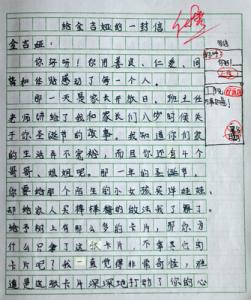 给金吉娅的一封信
金吉娅：
你好呀！你用善良、仁爱、同
情和体贴感动了每一个人。
那一天是家长开放日，班主任
老师讲给了我和家长们八岁时候关
于你圣诞节的故事。我知道你们家
的生活并不宽裕，而且你还有4个
哥哥、姐姐吧。那一年的圣诞节，
你要给那个陌生的小女孩买洋娃娃，
却给家人买棒棒糖的做法我了解。
给予树上有那么多的卡片，那你为
什么只拿了这张卡片，不拿其它的
卡片呢？我一直觉得非常奇怪，难
道是这张卡片深深地打动了你的心